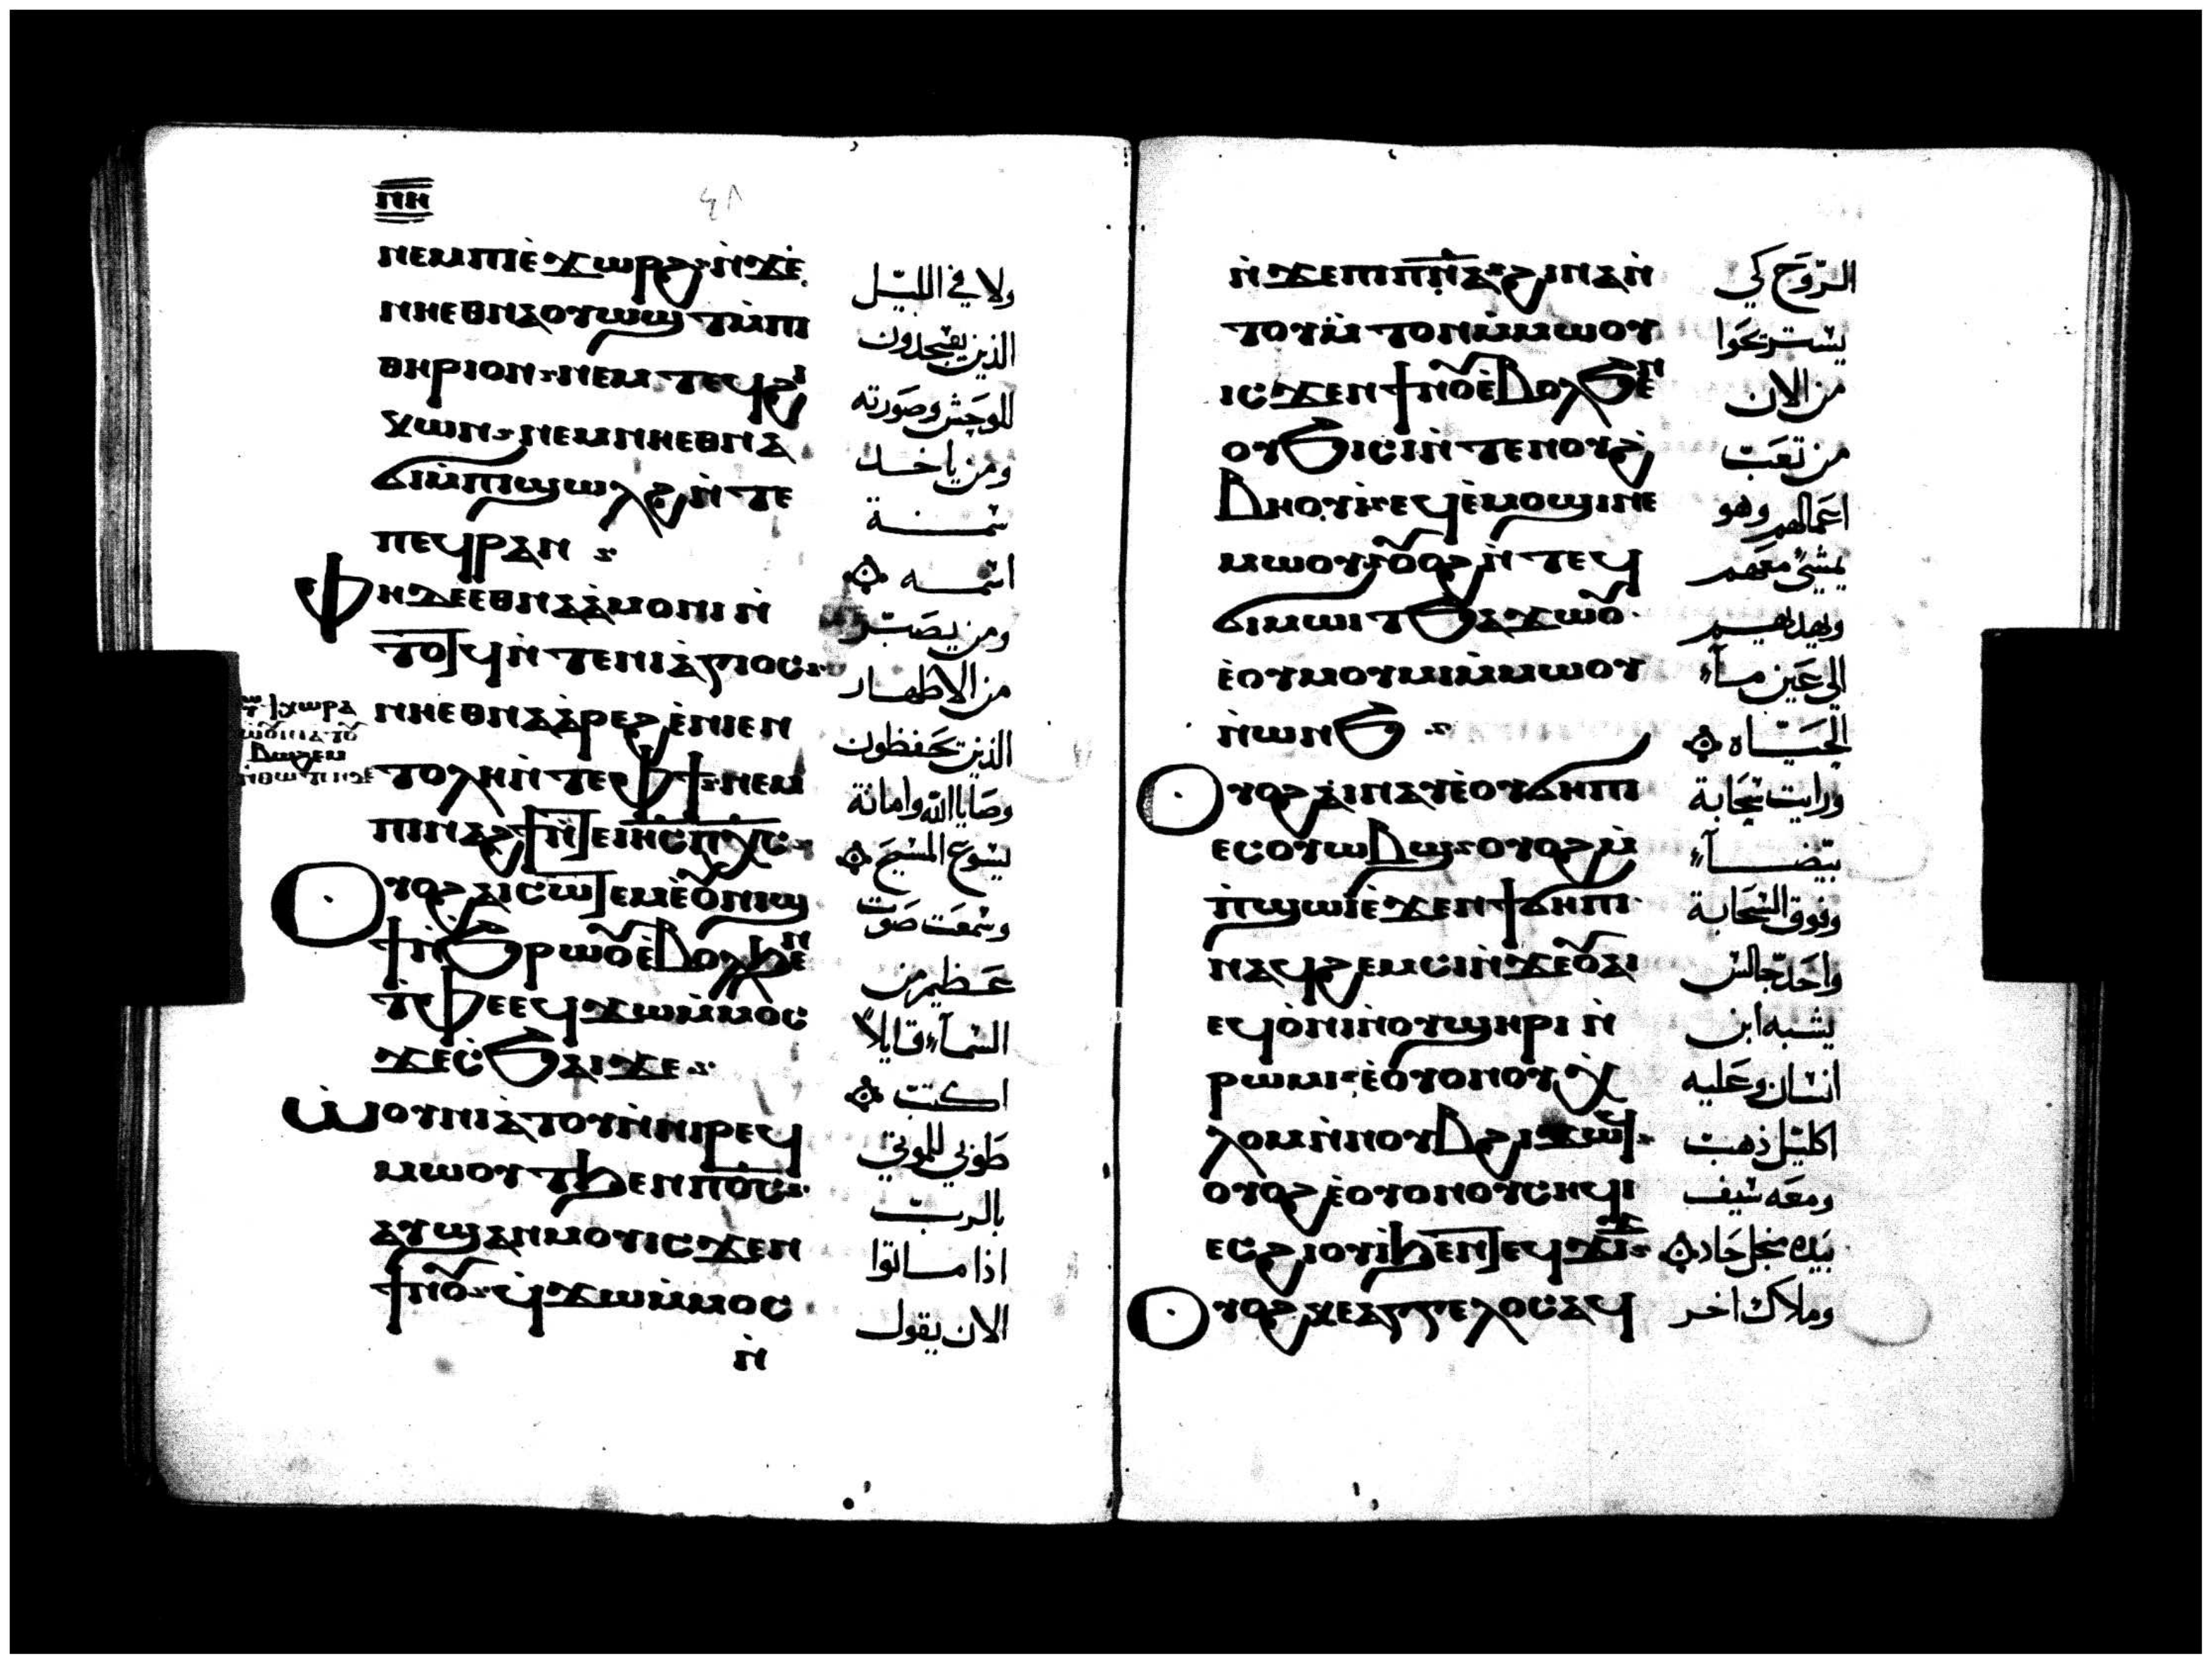 ⲡⲏ
ⲛⲉⲙⲡⲓⲉ̀ϫⲱⲣϩ ⲛ̀ϫⲉ
ⲛⲏⲉⲑⲛⲁⲟⲩⲱϣⲧⲙ̀ⲡⲓ
ⲑⲏⲣⲓⲟⲛ ⲛⲉⲙ ⲧⲉϥϩⲓ
ⲕⲱⲛ ⲛⲉⲙⲛⲏⲉⲑⲛⲁ
ϭⲓⲙ̀ⲡϣⲱⲗϩ ⲛ̀ⲧⲉ
ⲡⲉϥⲣⲁⲛ
ⲫⲏⲇⲉⲉⲑⲛⲁⲁ̀ⲙⲟⲛⲓ ⲛ̀
ⲧⲟⲧϥ ⲛ̀ⲧⲉⲛⲓⲁ̀ⲅⲓⲟⲥ
ⲛⲏⲉⲑⲛⲁⲁ̀ⲣⲉϩ ⲉ̀ⲛⲓⲉⲛ
ⲧⲟⲗⲏ ⲛ̀ⲧⲉⲫϯ ⲛⲉⲙ
ⲡⲓⲛⲁϩϯ ⲛ̀ⲧⲉⲓⲏⲥⲡⲭⲥ
ⲟⲩⲟϩ ⲁⲓⲥⲱⲧⲉⲙ ⲉ̀ⲟⲩⲛⲓϣ
ϯ ⲛ̀ϧⲣⲱⲟⲩ ⲉ̀ⲃⲟⲗϧⲉⲛ
ⲧ̀ⲫⲉ ⲉϥϫⲱⲙ̀ⲙⲟⲥ
ϫⲉⲥ̀ϧⲁⲓ ϫⲉ
ⲱ̀ⲟⲩⲛⲓⲁ̀ⲧⲟⲩ ⲛ̀ⲛⲓⲣⲉϥ
ⲙⲱⲟⲩⲧ ϧⲉⲛⲡⲟⲥ
ⲁⲩϣⲁⲛⲙⲟⲩ ⲓⲥϫⲉⲛ
ϯⲛⲟⲩ ϥ̀ϫⲱⲙ̀ⲙⲟⲥ
ⲛ̀
ولا في الليل
الذين يسجدون
للوحش وصورته
ومن ياخد
سمة
اسمه
ومن يصبر
من الاطهار
الذين يحفظون
وصايا الله وامانة
يسوع المسيح
وسمعت صوت
عظيم من
السماء قايلا
اكتب
طوبي للموتي
بالرب
اذا ماتوا
الان يقول
ⲛ̀ϫⲉⲡⲓⲡ̅ⲛ̅ⲁ̅ ϩⲓⲛⲁ ⲛ̀
ⲧⲟⲩⲙ̀ⲧⲟⲛ ⲙ̀ⲙⲱⲟⲩ
ⲓⲥϫⲉⲛϯⲛⲟⲩ ⲉ̀ⲃⲟⲗϧⲉⲛ
ⲟⲩϧⲓⲥⲓ ⲛ̀ⲧⲉⲛⲟⲩϩ
ⲃⲏⲟⲩⲓ̀ ⲉϥⲉ̀ⲙⲟϣⲓ ⲛⲉ
ⲙⲱⲟⲩ ⲟⲩⲟϩ ⲛ̀ⲧⲉϥ
ϭⲓⲙⲱⲓⲧ ϧⲁϫⲱⲟⲩ
ⲉ̀ⲟⲩⲙⲟⲩⲙⲓ ⲙ̀ⲙⲱⲟⲩ
ⲛ̀ⲱⲛϧ
ⲟⲩⲟϩ ⲁⲓⲛⲁⲩ ⲉ̀ⲟⲩϭⲏⲡⲓ
ⲉⲥⲟⲩⲱⲃϣ ⲟⲩⲟϩ ⲙ̀
ⲡ̀ϣⲱⲓ ⲉ̀ϫⲉⲛϯϭⲏⲡⲓ
ⲛⲁϥϩⲉⲙⲥⲓ ⲛ̀ϫⲉⲟⲩⲁⲓ
ⲉϥⲟ̀ⲛⲓ ⲛ̀ⲟⲩϣⲏⲣⲓ ⲛ̀
ⲣⲱⲙⲓ ⲉ̀ⲟⲩⲟⲛⲟⲩⲭ
ⲗⲟⲙ ⲛ̀ⲛⲟⲩⲃ ϩⲓϫⲱϥ
ⲟⲩⲟϩ ⲉ̀ⲟⲩⲟⲛⲟⲩⲥⲏϥⲓ
ⲉⲥϩⲓⲟⲩⲓ̀ ϧⲉⲛⲧⲉϥϫⲓϫ
ⲟⲩⲟϩ ⲕⲉⲁⲅⲅⲉⲗⲟⲥ ⲁϥ
الروح كي
يستريحوا
من الان
من تعب
اعمالهم وهو
يمشي معهم
ويهديهم
الي عين ماء
الحياه
ورايت سحابة
بيضاء
وفوق السحابة
واحد جالس
يشبه ابن
انسان وعليه
اكليل ذهب
ومعه سيف
بيده منجل حاد
وملاك اخر